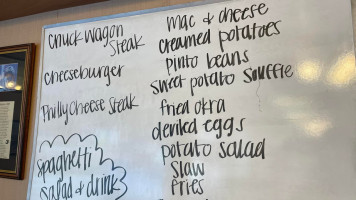 Chuck Wagon
Steak
Cheeseburger
Philly Cheese Steak
Spaghetti
Salad & drink
mac & cheese
creamed potatoes
pinto beans
sweet potato souffle
fried okra
deviled eggs
potato salad
slaw
fries